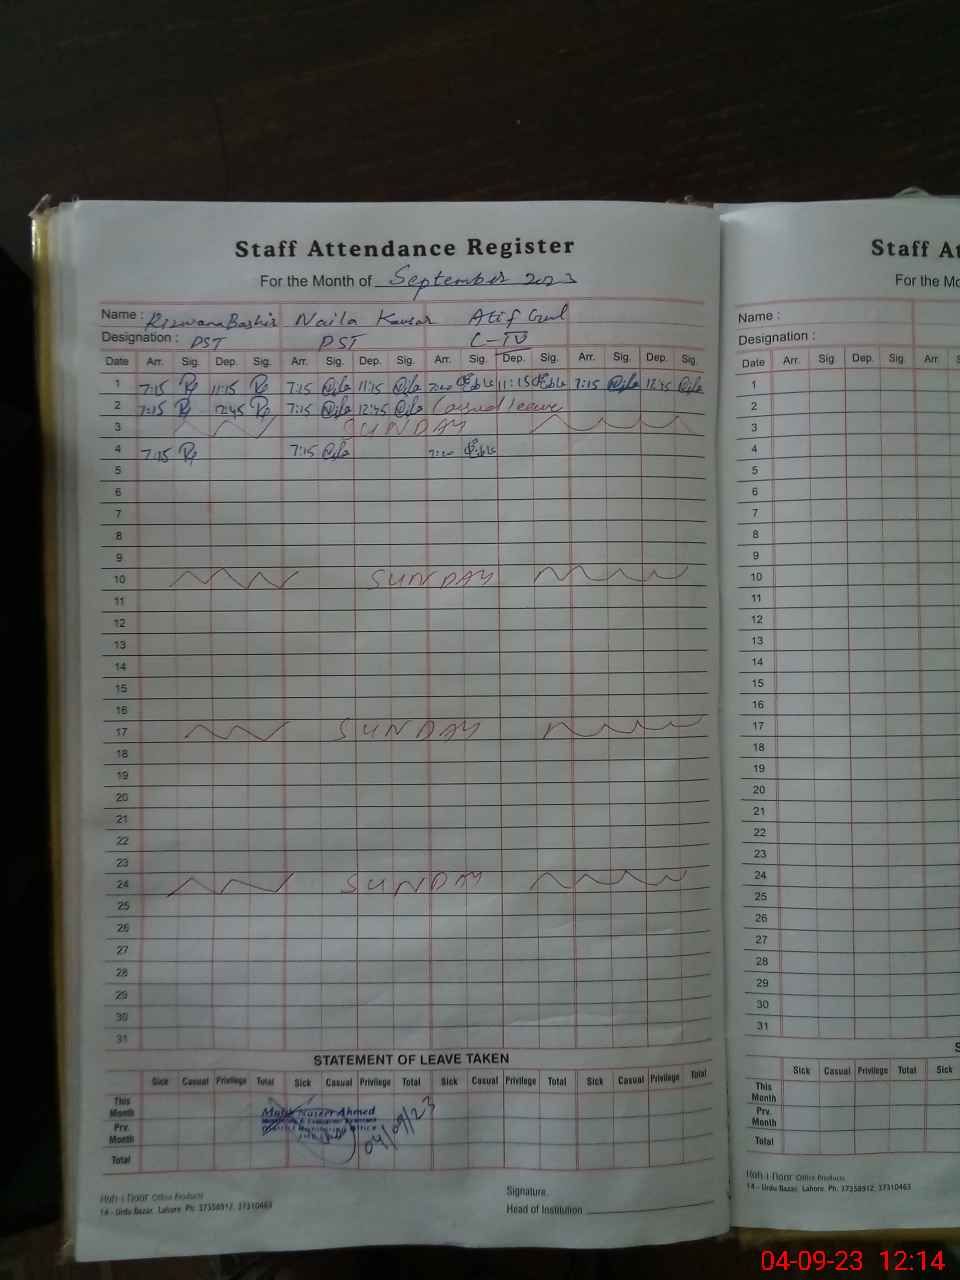 Staff Attendance Register
For the Month of September 2023
Name : Rizwana Bashir Naila Kausar Atif Gul
Designation : PST PST C-IV
Date Arr. Sig. Dep. Sig. Arr. Sig. Dep. Sig. Arr. Sig. Dep. Sig. Arr. Sig. Dep. Sig.
1 7:15 11:15 7:15 11:15 7:20 11:15 7:15 12:45
2 7:15 12:45 7:15 12:45 Casual leave
3 SUNDAY
4 7:15 7:15 7:20
5
6
7
8
9
10 SUNDAY
11
12
13
14
15
16
17 SUNDAY
18
19
20
21
22
23
24 SUNDAY
25
26
27
28
29
30
31
STATEMENT OF LEAVE TAKEN
Sick Casual Privilege Total Sick Casual Privilege Total Sick Casual Privilege Total Sick Casual Privilege Total
This Month
Prv. Month
Total
Ahmed
04/09/23
Koh-i-Noor Office Products
14 - Urdu Bazar, Lahore. Ph: 37358912, 37310463
Signature.
Head of Institution
Staff At
For the Mo
Name :
Designation :
Date Arr. Sig. Dep. Sig. Arr.
1
2
3
4
5
6
7
8
9
10
11
12
13
14
15
16
17
18
19
20
21
22
23
24
25
26
27
28
29
30
31
S
Sick Casual Privilege Total Sick
This Month
Prv. Month
Total
Koh-i-Noor Office Products
14 - Urdu Bazar, Lahore. Ph: 37358912, 37310463
04-09-23 12:14